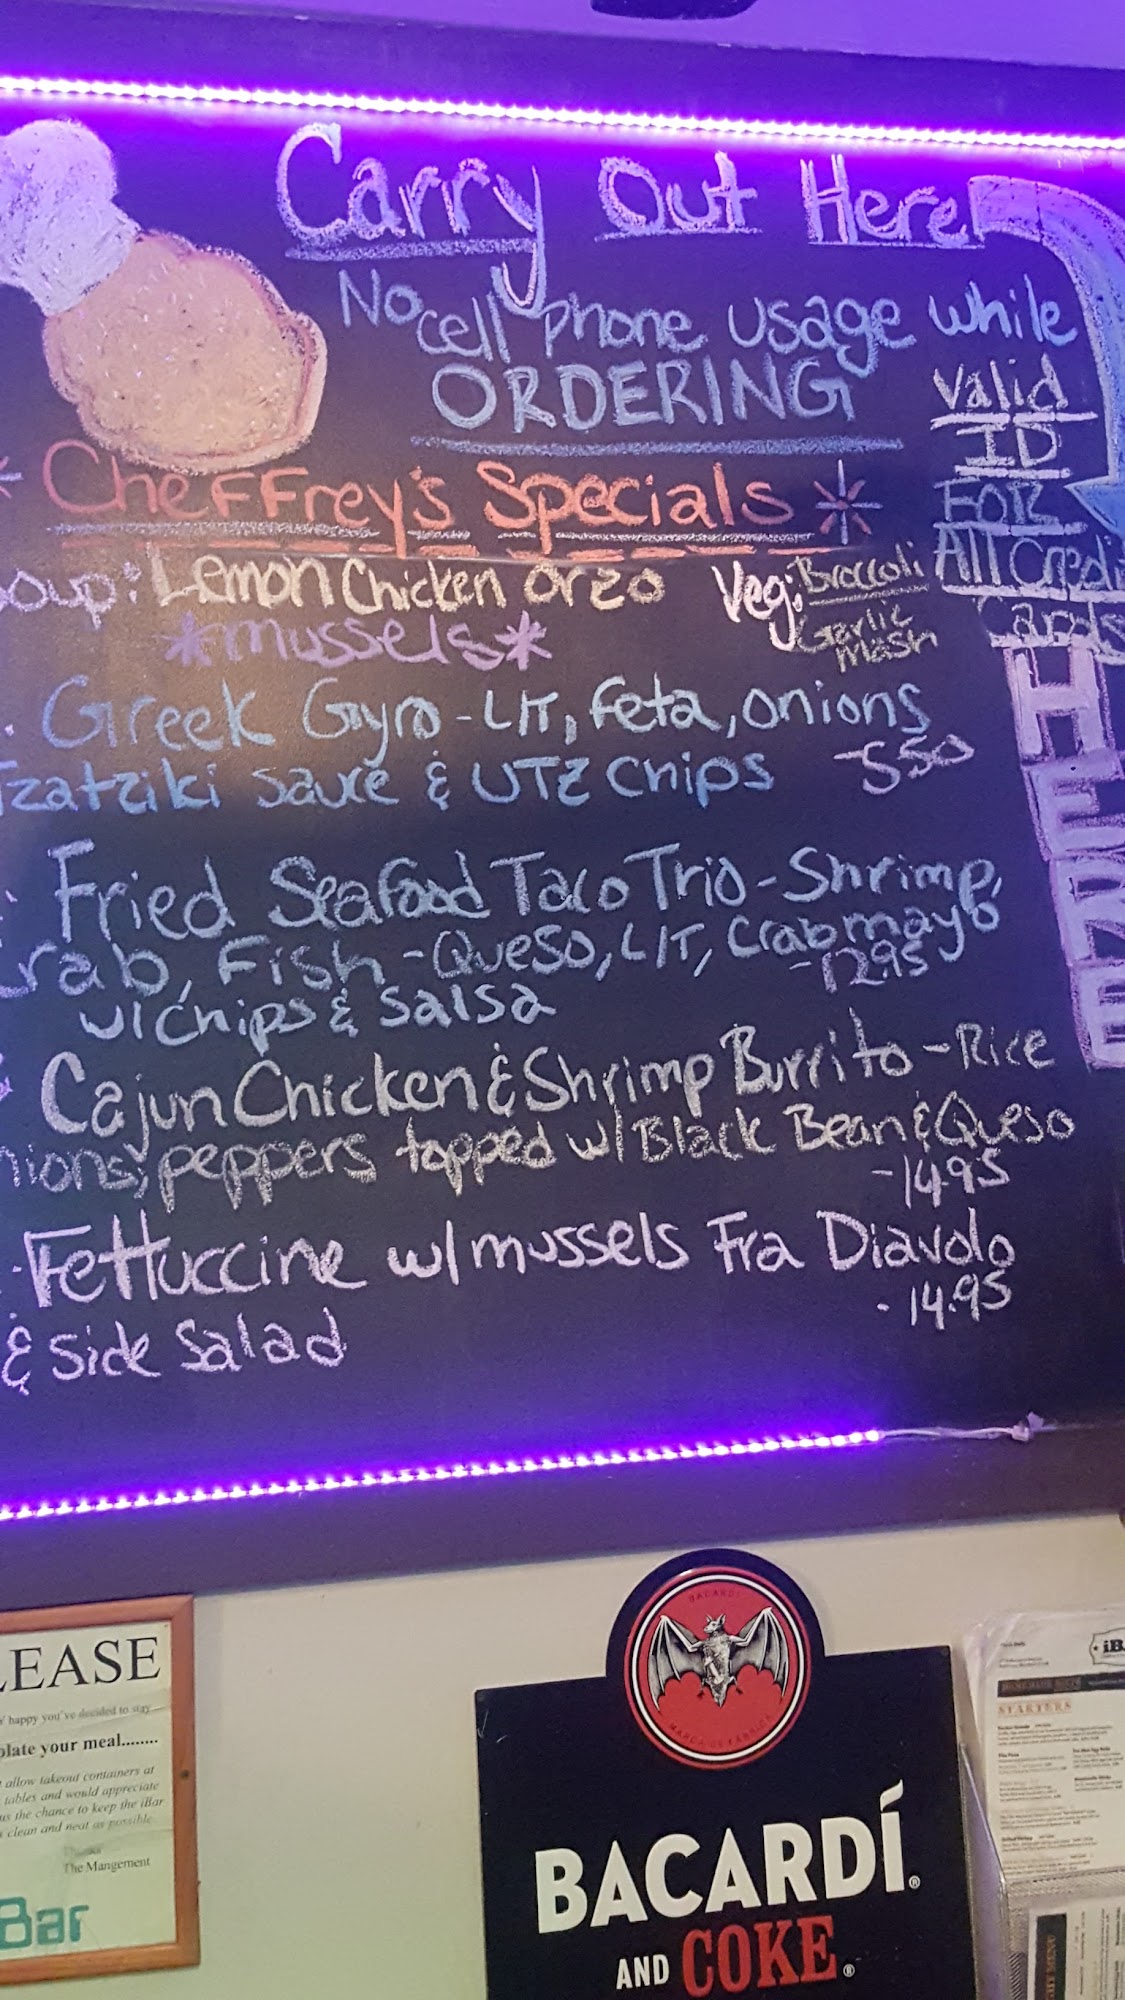 Carry Out Here
No cell phone usage while
ORDERING
Valid
ID
FOR
All Credi
Cards
HERE
*Cheffrey's Specials*
oup: Lemon Chicken Orzo
Veg: Broccoli
Garlic
Mash
*mussels*
Greek Gyro - L/T, Feta, onions
Tzatziki Sauce & UTZ Chips -550
Fried Seafood Taco Trio - Shrimp,
rab, Fish - Queso, L/T, Crab mayo
w/chips & Salsa -12.95
Cajun Chicken & Shrimp Burrito - Rice
nions, peppers topped w/ Black Bean & Queso
-14.95
Fettuccine w/ mussels Fra Diavolo
-14.95
& Side Salad
LEASE
happy you've decided to stay
plate your meal........
allow takeout containers at
tables and would appreciate
us the chance to keep the iBar
clean and neat as possible.
Thanks
The Mangement
Bar
BACARDÍ
BACARDÍ®
AND COKE®
iBA
STARTERS
MENU